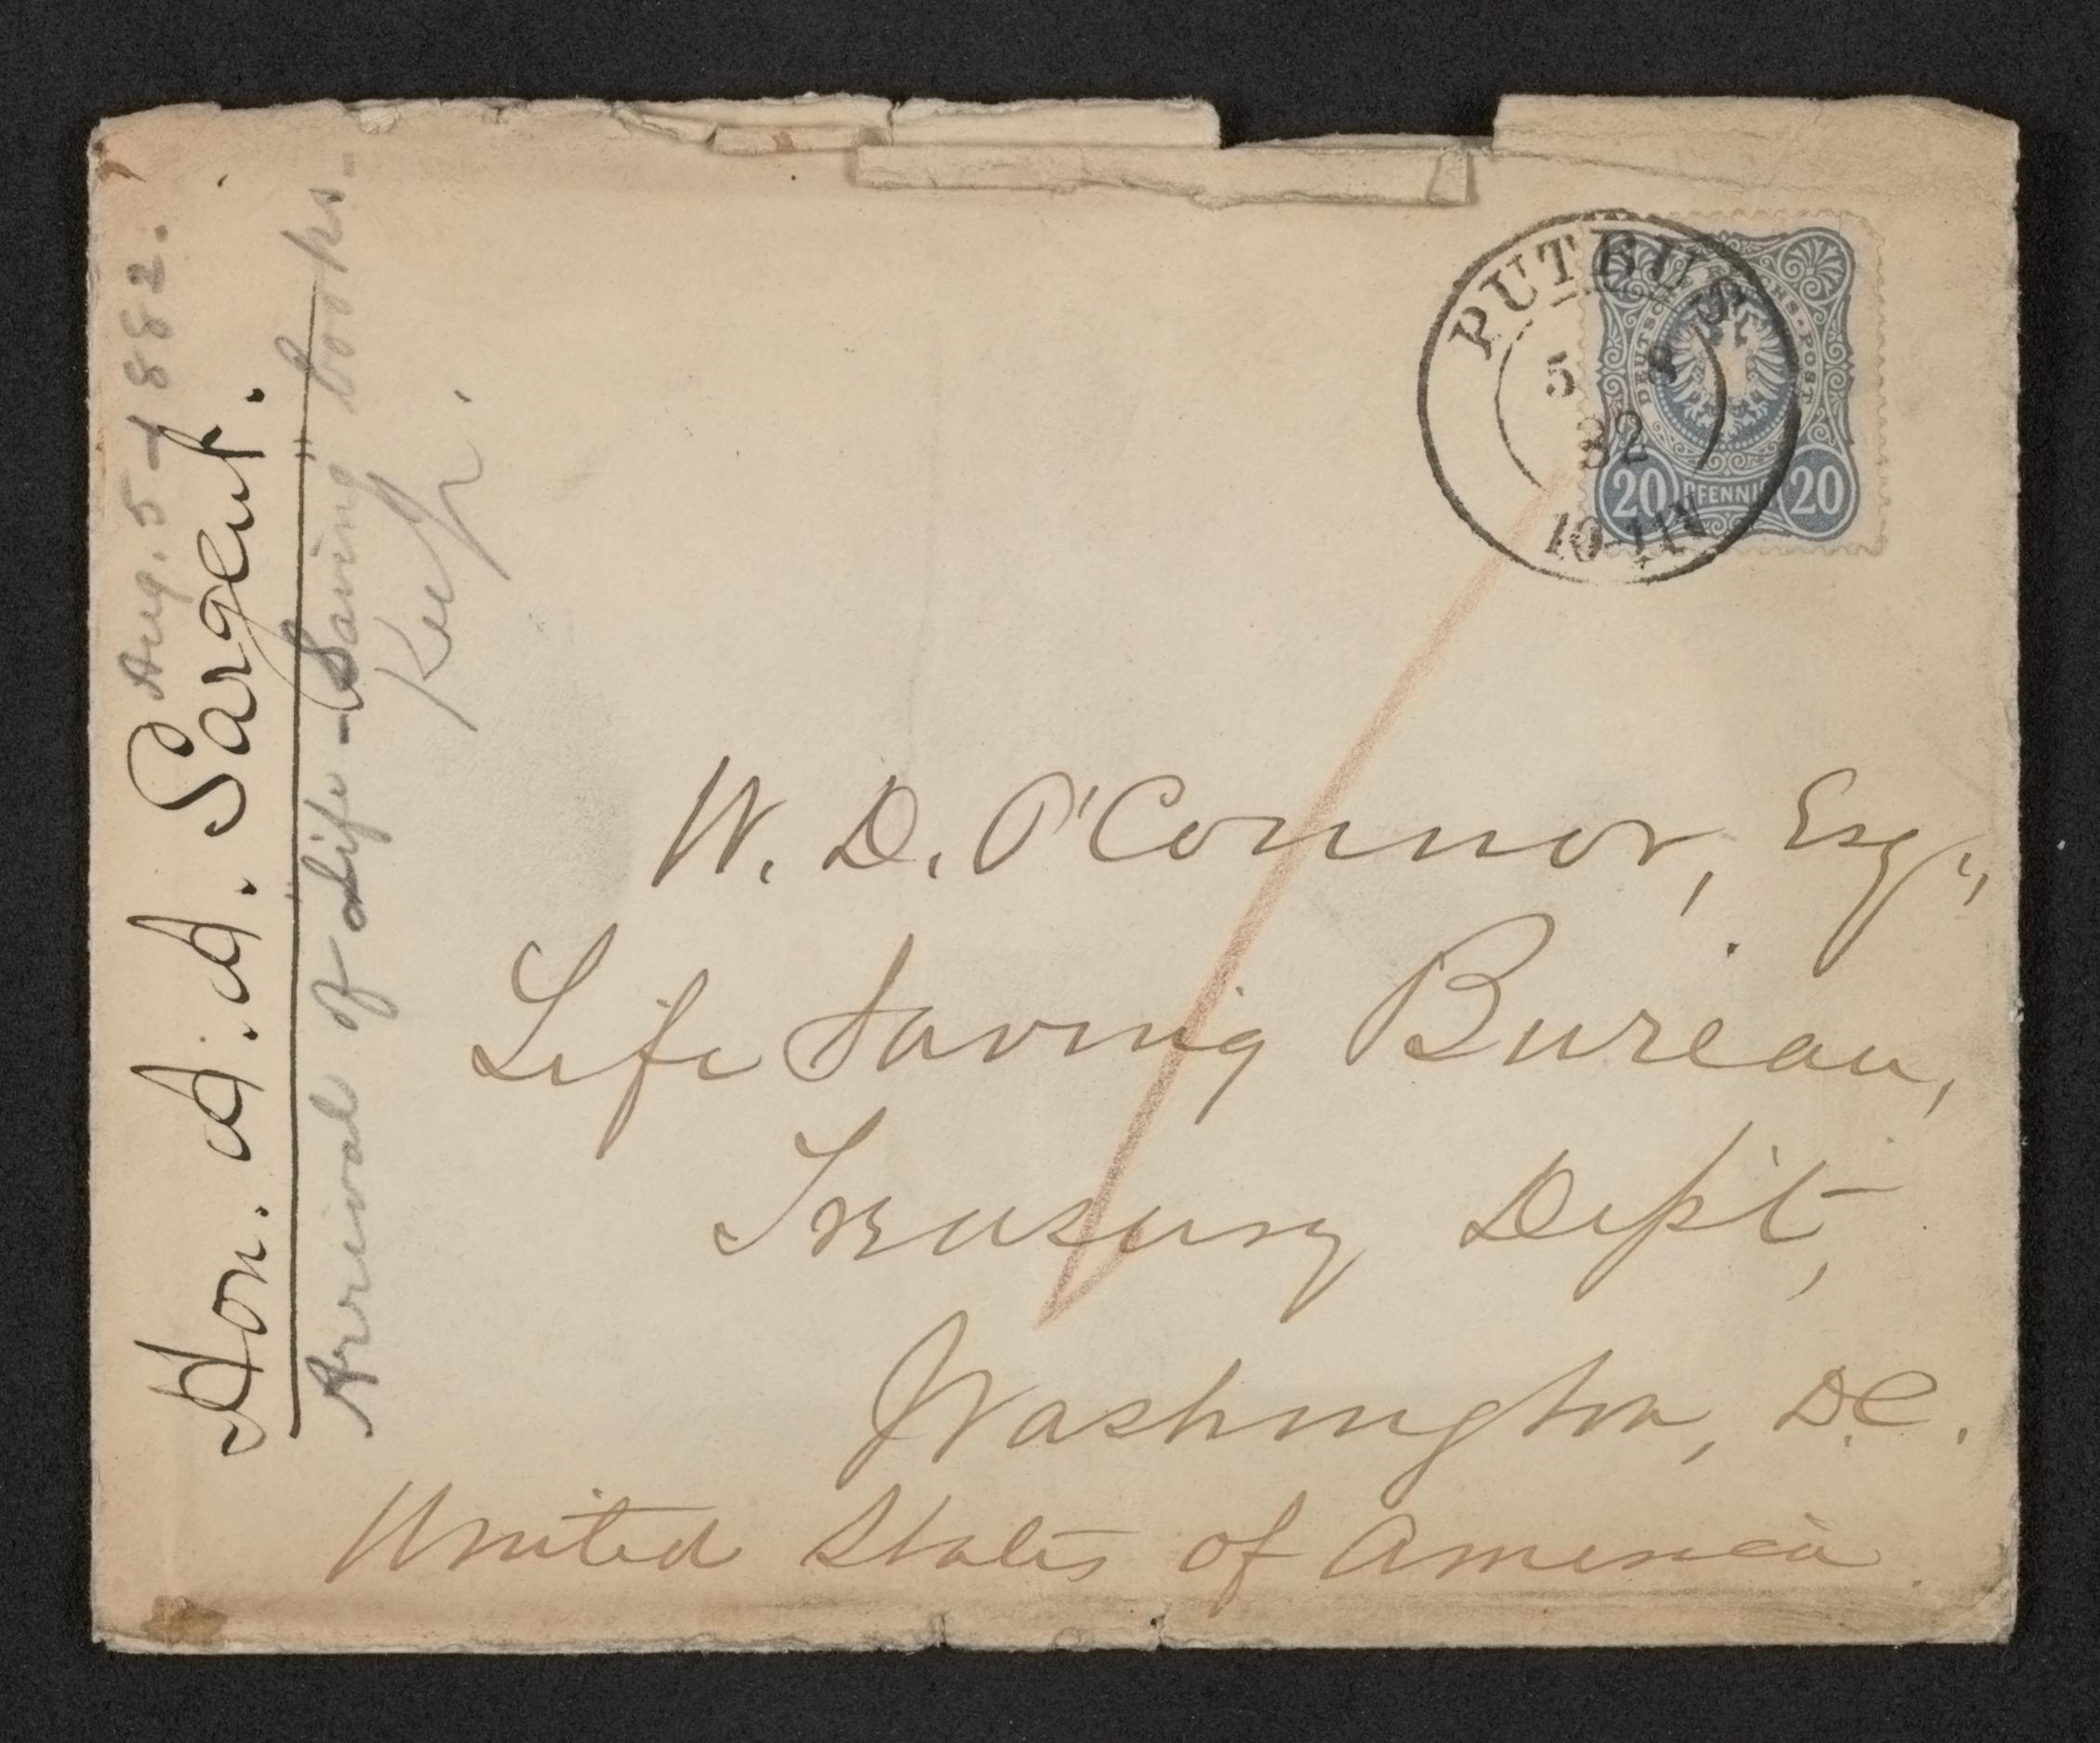 Aug. 5 - 1882.
Hon. A. A. Sargent.
Arrival of "Life-Saving" books-
Keep.
PUTBUS
5 8
82
10-11V
DEUTSCHE REICHS-POST
20 PFENNIG 20
W. D. O'Connor, Esq.,
Life Saving Bureau,
Treasury Dept,
Washington, D.C.
United States of America.